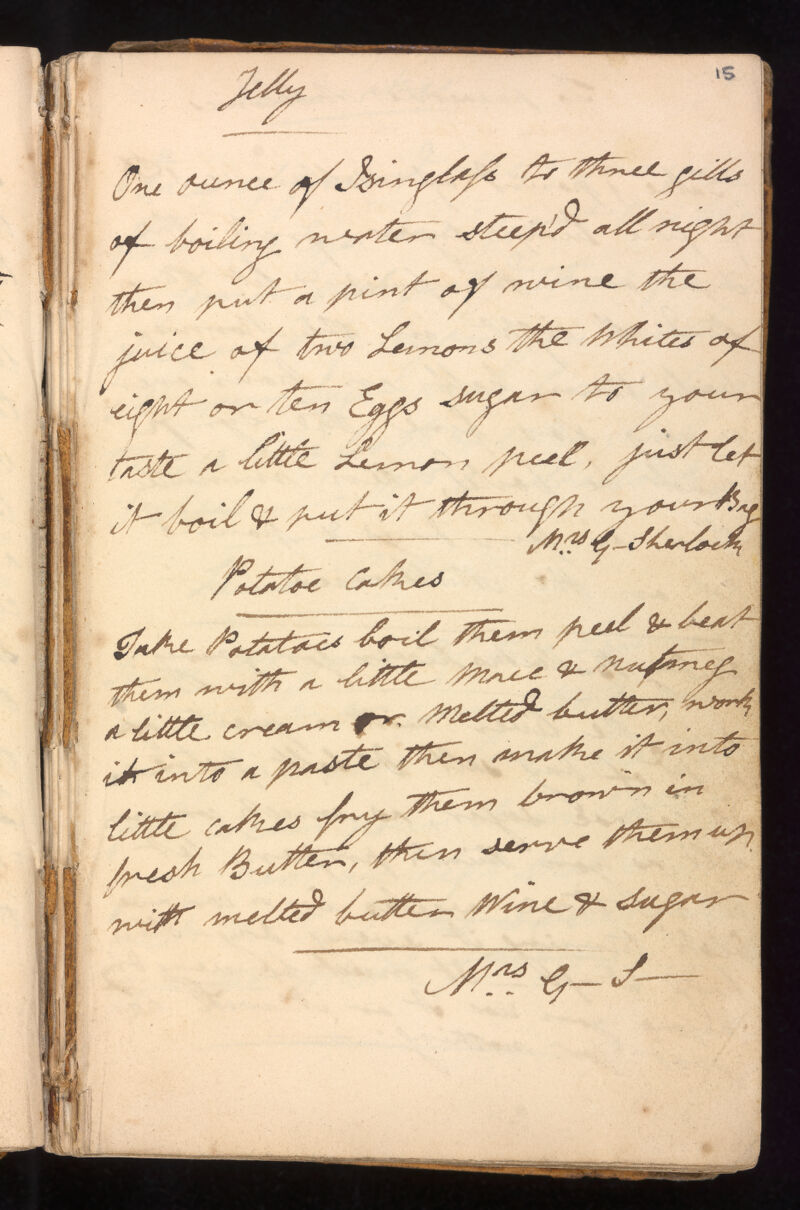 15
Jelly
One ounce of Isinglaſs to three gills
of boiling water steep'd all night
then put a pint of wine the
juice of two Lemons the Whites of
eight or ten Eggs sugar to your
taste a little Lemon peel, just let
it boil & put it through your Bag
Mrs G- Sherlock
Potatoe Cakes
Take Potatoes boil them peel & beat
them with a little Mace & nutmeg
a little cream or Melted butter, work
it into a paste then make it into
little cakes fry them brown in
fresh Butter, then serve them up
with melted butter Wine & sugar
Mrs G- S-